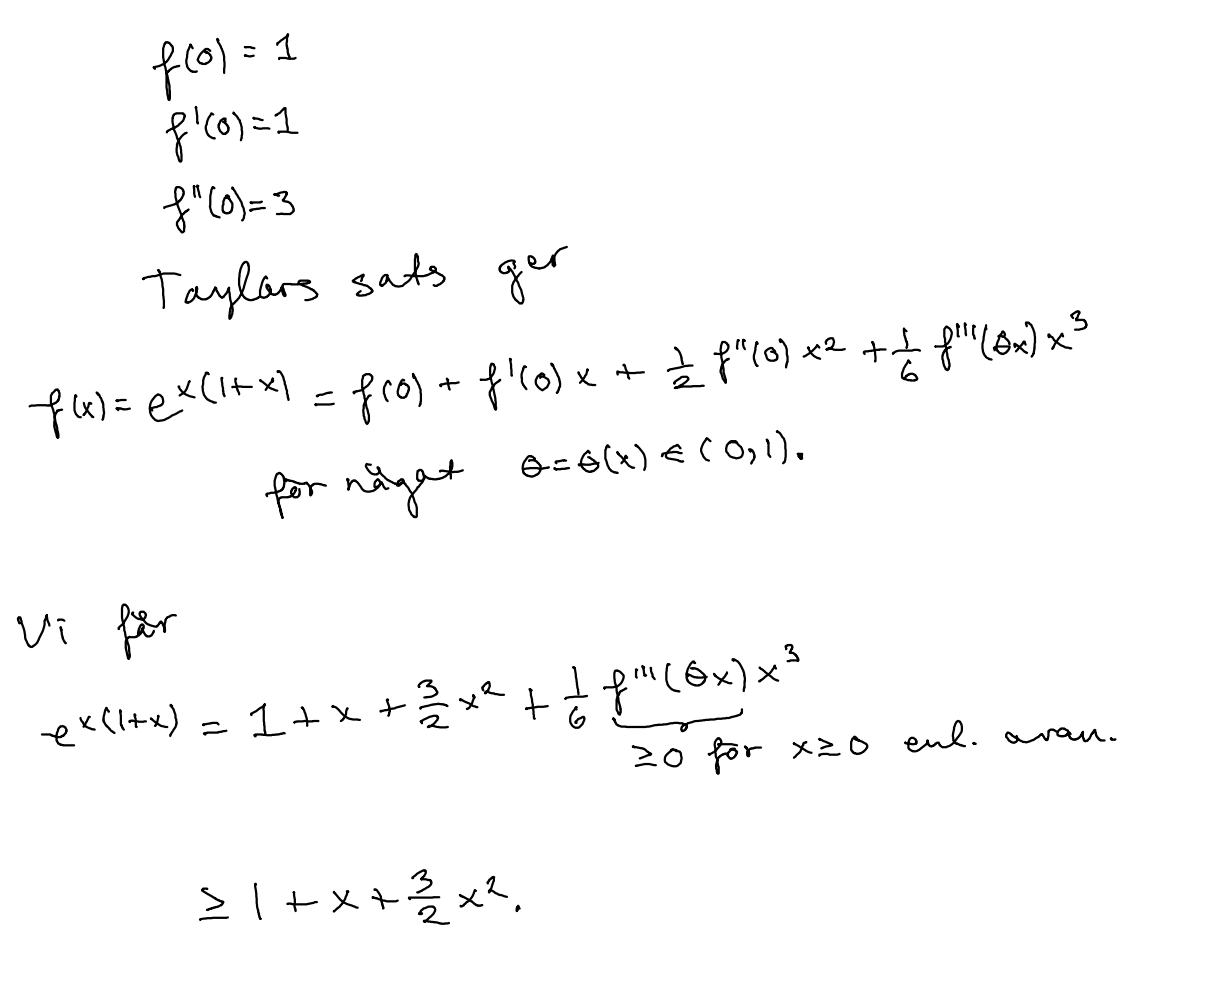 f(0) = 1
f'(0) = 1
f''(0) = 3
Taylors sats ger
f(x) = e^{x(1+x)} = f(0) + f'(0) x + \frac{1}{2} f''(0) x^2 + \frac{1}{6} f'''(θx) x^3
för något θ = θ(x) ∈ (0,1).
Vi får
e^{x(1+x)} = 1 + x + \frac{3}{2} x^2 + \frac{1}{6} f'''(θx) x^3
≥0 för x≥0 enl. ovan.
≥ 1 + x + \frac{3}{2} x^2.